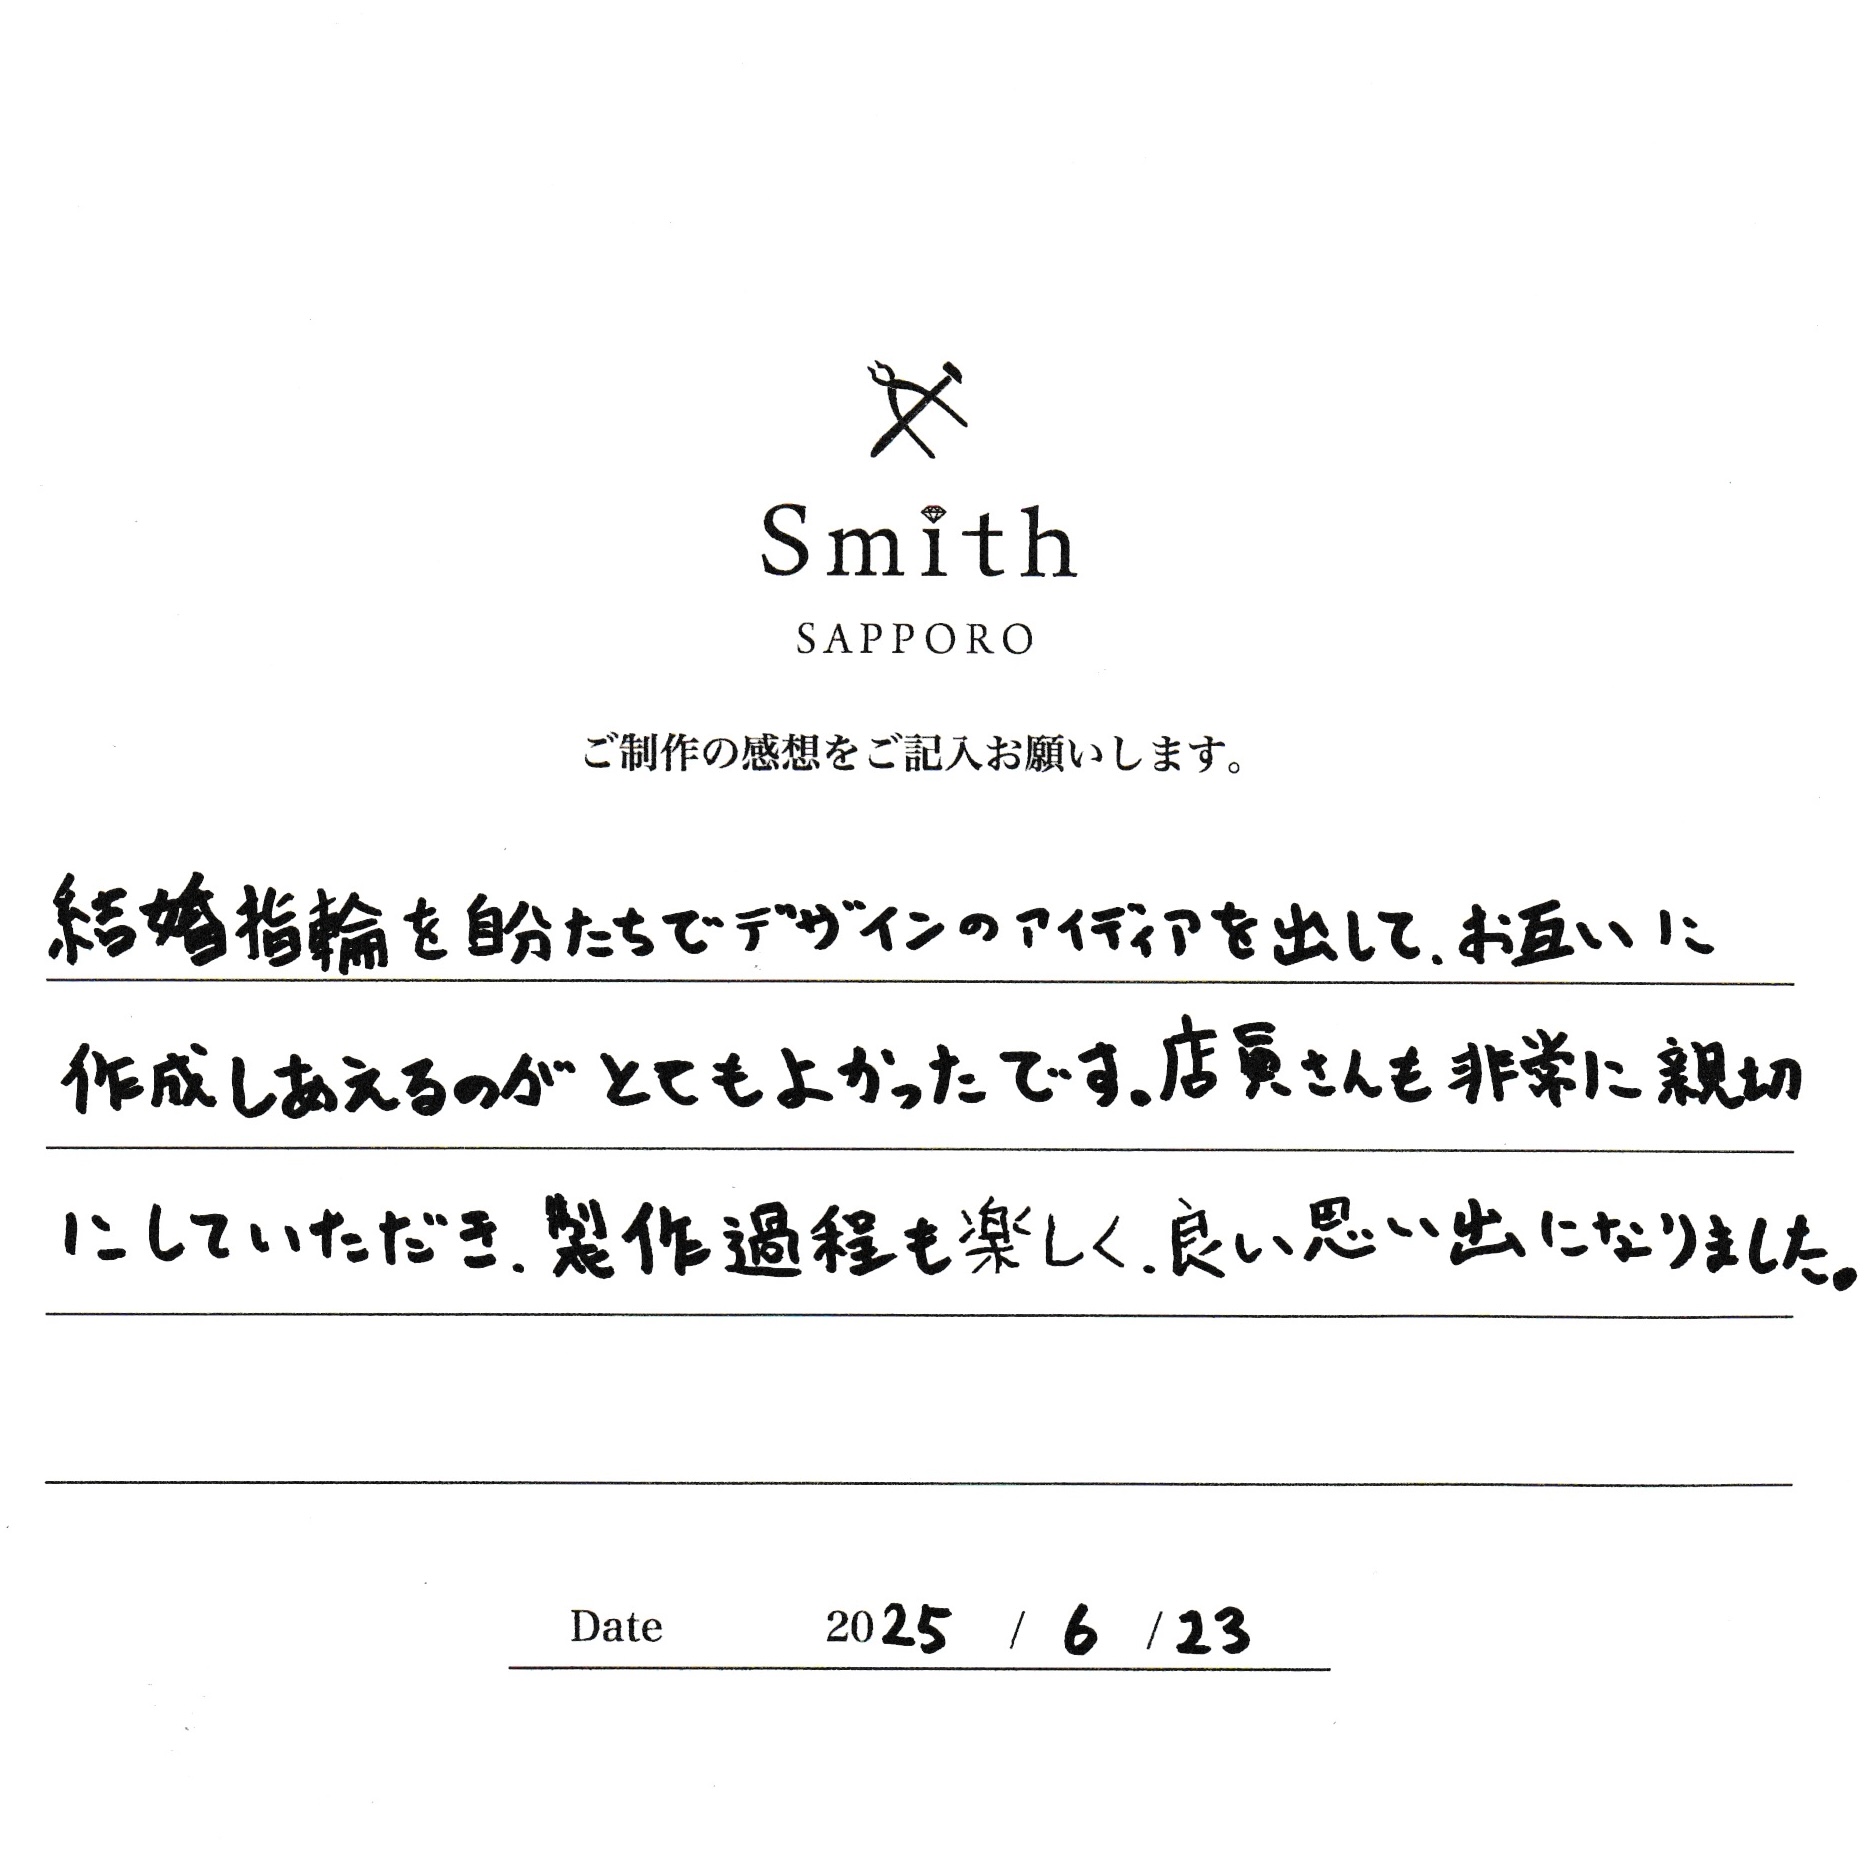 Smith
SAPPORO
ご制作の感想をご記入お願いします。
結婚指輪を自分たちでデザインのアイディアを出して、お互いに
作成しあえるのがとてもよかったです。店員さんも非常に親切
にしていただき、製作過程も楽しく、良い思い出になりました。
Date 2025 / 6 / 23